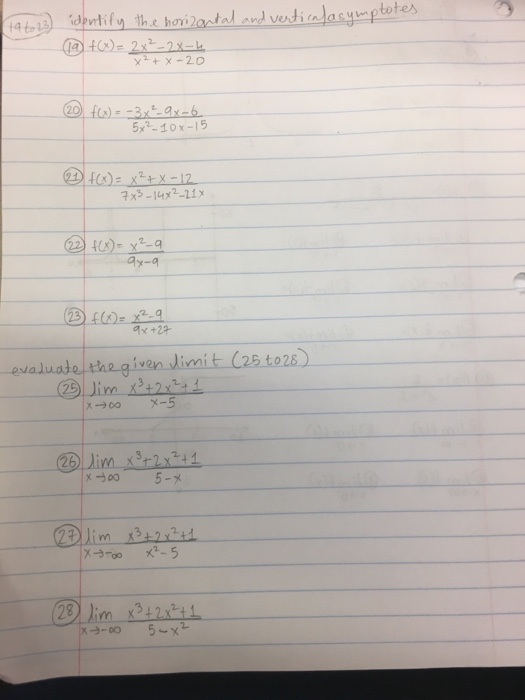 19 to 23 identify the horizontal and vertical asymptotes
19 f(x) = 2x² - 2x - 4
x² + x - 20
20 f(x) = -3x² - 9x - 6
5x² - 10x - 15
21 f(x) = x² + x - 12
7x³ - 14x² - 21x
22 f(x) = x² - 9
9x - 9
23 f(x) = x² - 9
9x + 27
evaluate the given limit (25 to 28)
25 lim x³ + 2x² + 1
x→∞ x - 5
26 lim x³ + 2x² + 1
x→∞ 5 - x
27 lim x³ + 2x² + 1
x→-∞ x² - 5
28 lim x³ + 2x² + 1
x→-∞ 5 - x²